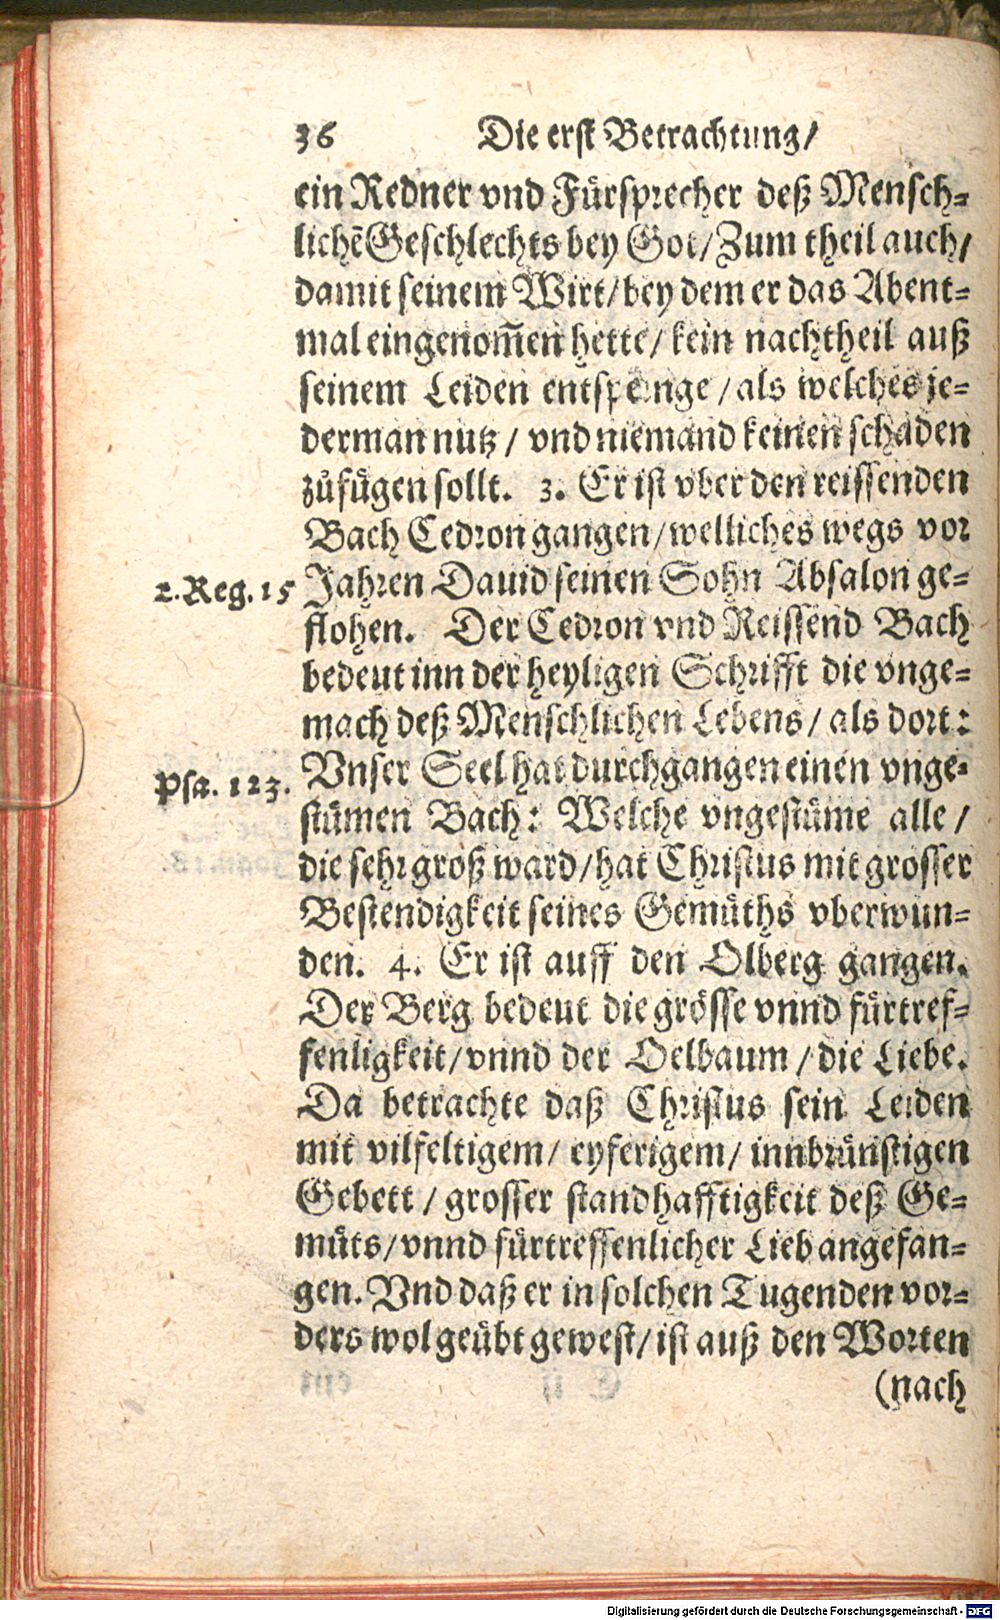 36 Die erst Betrachtung/
ein Redner vnd Fürsprecher deß Mensch-
lichẽ Geschlechts bey Got/ Zum theil auch/
damit seinem Wirt/ bey dem er das Abent-
mal eingenom̃en hette/ kein nachtheil auß
seinem Leiden entspringe/ als welches je-
derman nutz/ vnd niemand keinen schaden
zůfügen sollt. 3. Er ist vber den reissenden
Bach Cedron gangen/ welliches wegs vor
2. Reg. 15 Jahren Dauid seinen Sohn Absalon ge-
flohen. Der Cedron vnd Reissend Bach
bedeut inn der heyligen Schrifft die vnge-
mach deß Menschlichen Lebens/ als dort:
Psa. 123. Vnser Seel hat durchgangen einen vnge-
stümen Bach: Welche vngestüme alle/
die sehr groß ward/ hat Christus mit grosser
Bestendigkeit seines Gemüths vberwun-
den. 4. Er ist auff den Olberg gangen.
Der Berg bedeut die grösse vnnd fürtref-
fenligkeit/ vnnd der Oelbaum/ die Liebe.
Da betrachte daß Christus sein Leiden
mit vilfeltigem/ eyferigem/ innbrünstigen
Gebett/ grosser standhafftigkeit deß Ge-
müts/ vnnd fürtreffenlicher Lieb angefan-
gen. Vnd daß er in solchen Tugenden vor-
ders wol geübt gewest/ ist auß den Worten
(nach
Digitalisierung gefördert durch die Deutsche Forschungsgemeinschaft - DFG